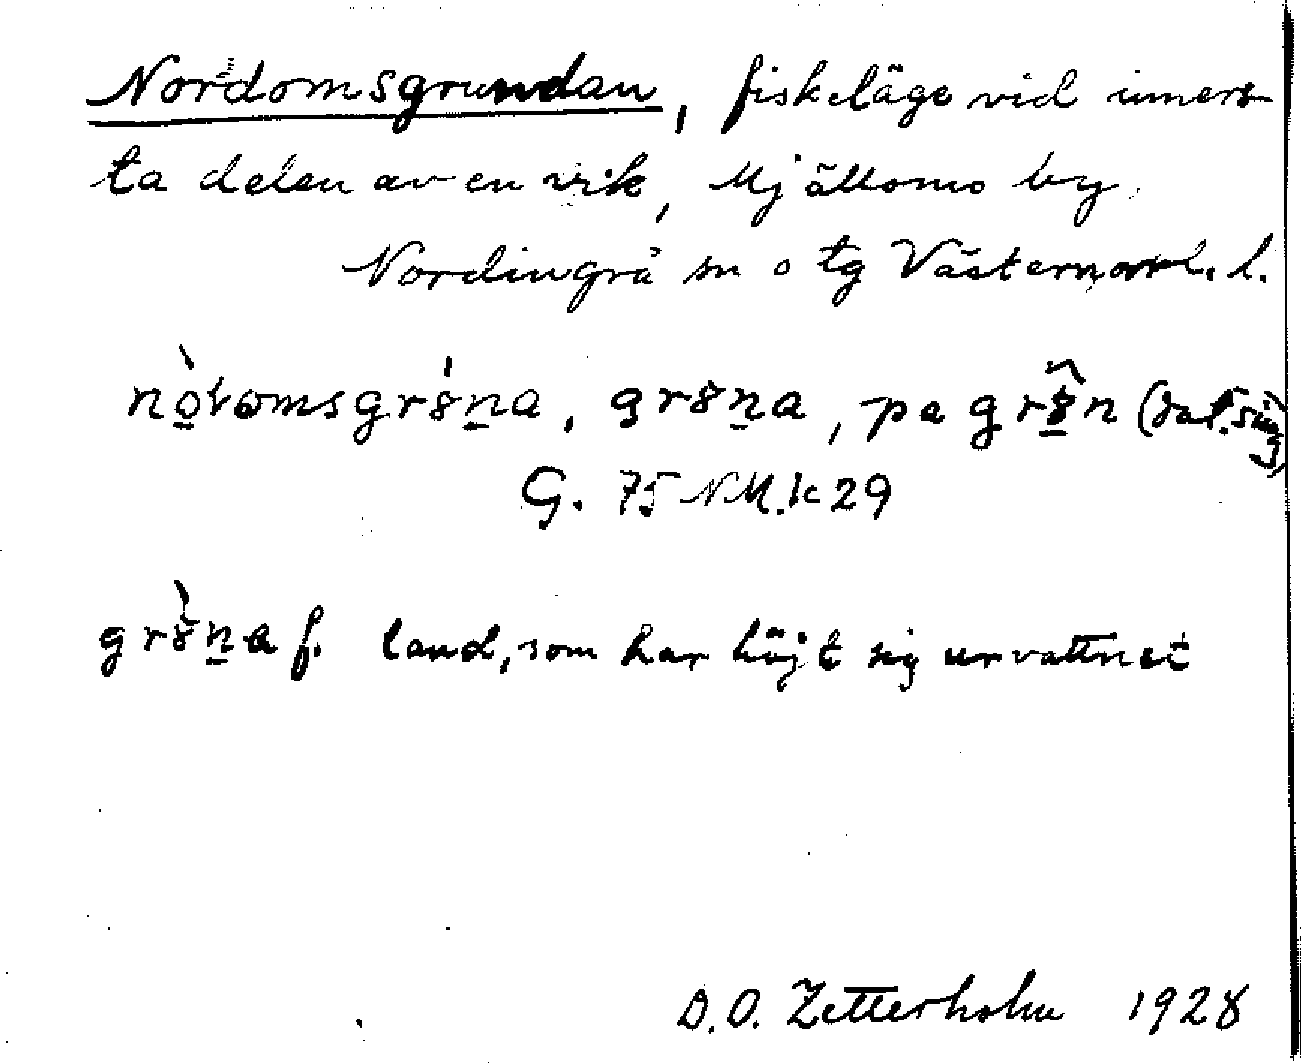 Nordomsgrundan, fiskeläge vid inners-
ta delen av en vik, Mjällomo by
Nordingrå sn o tg Västernorrl. l.
nòtomsgrs̀na, grsna, pa grsn (dat. sing)
G. 75 NM. k 29
grs̀na f. land, som har höjt sig ur vattnet
D.O. Zetterholm 1928